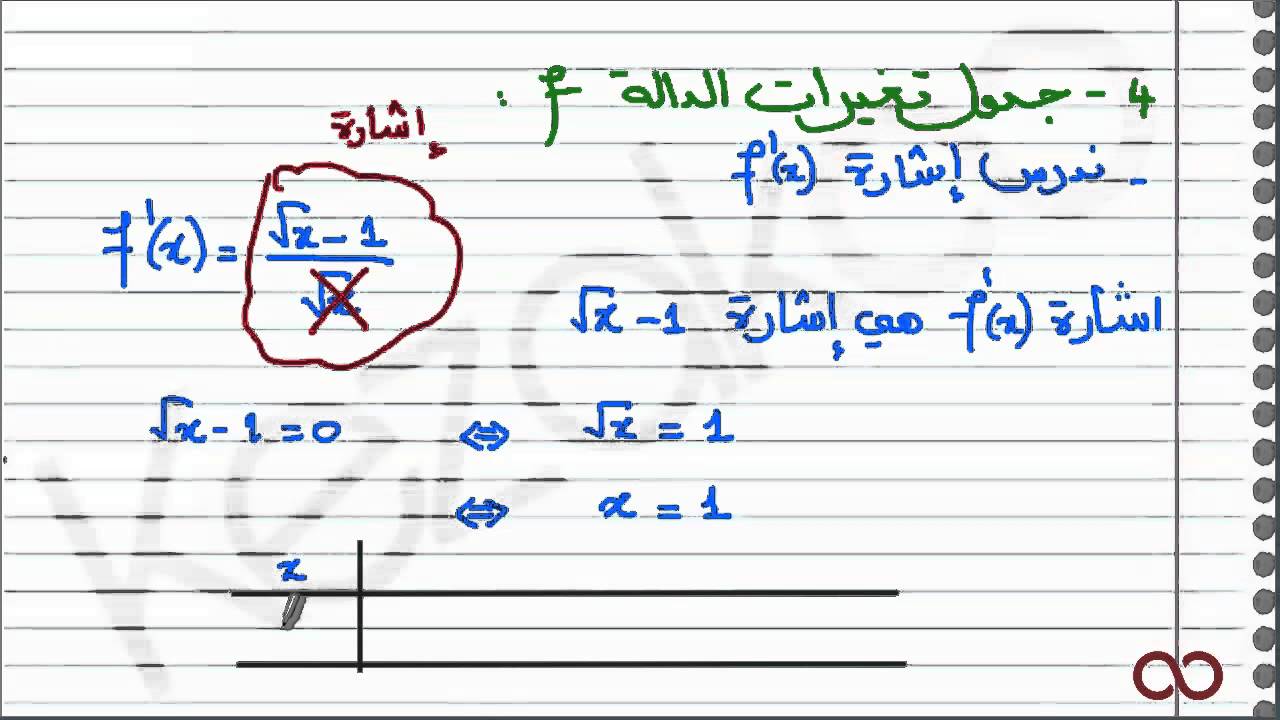 4 - جدول تغيرات الدالة f :
- ندرس إشارة f'(x)
إشارة
f'(x) = (√x - 1)/√x
اشارة f'(x) هي إشارة √x - 1
√x - 1 = 0 ⇔ √x = 1
⇔ x = 1
x